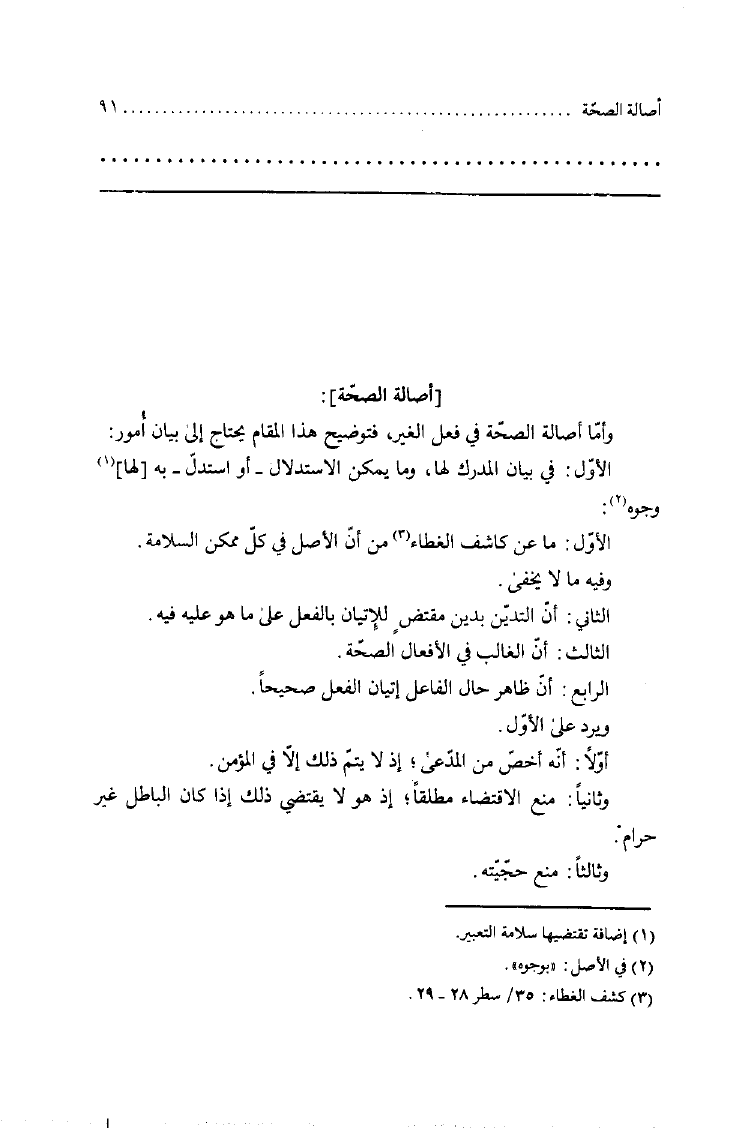 أصالة الصحّة ........................................................ ٩١
..................................................
[أصالة الصحّة]:
وأمّا أصالة الصحّة في فعل الغير، فتوضيح هذا المقام يحتاج إلىٰ بيان أُمور:
الأوّل: في بيان المدرك لها، وما يمكن الاستدلال ـ أو استدلّ ـ به [لها](١)
وجوه(٢):
الأوّل: ما عن كاشف الغطاء(٣) من أنّ الأصل في كلّ ممكن السلامة.
وفيه ما لا يخفىٰ.
الثاني: أنّ التديّن بدين مقتضٍ للإتيان بالفعل علىٰ ما هو عليه فيه.
الثالث: أنّ الغالب في الأفعال الصحّة.
الرابع: أنّ ظاهر حال الفاعل إتيان الفعل صحيحاً.
ويرد علىٰ الأوّل.
أوّلاً: أنّه أخصّ من المدّعىٰ؛ إذ لا يتمّ ذلك إلّا في المؤمن.
وثانياً: منع الاقتضاء مطلقاً؛ إذ هو لا يقتضي ذلك إذا كان الباطل غير
حرام.
وثالثاً: منع حجّيّته.
(١) إضافة تقتضيها سلامة التعبير.
(٢) في الأصل: «بوجوه».
(٣) كشف الغطاء: ٣٥/ سطر ٢٨ ـ ٢٩.